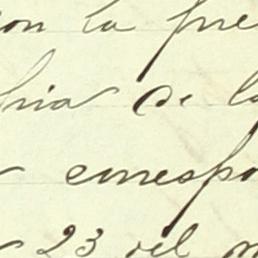 con la pre
ria de la
correspo
23 del m